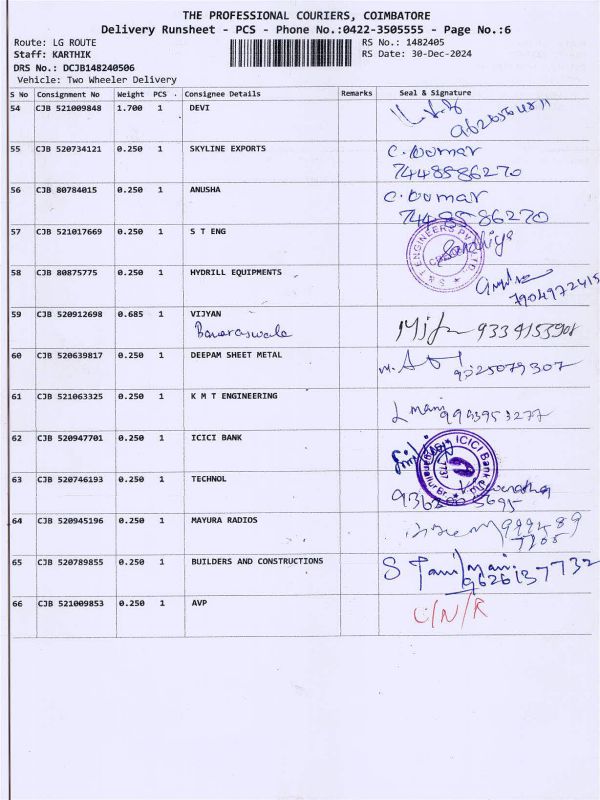 THE PROFESSIONAL COURIERS, COIMBATORE
Delivery Runsheet - PCS - Phone No.:0422-3505555 - Page No.:6
Route: LG ROUTE RS No.: 1482405
Staff: KARTHIK RS Date: 30-Dec-2024
DRS No.: DCJB148240506
Vehicle: Two Wheeler Delivery
S No Consignment No Weight PCS . Consignee Details Remarks Seal & Signature
54 CJB 521009848 1.700 1 DEVI
55 CJB 520734121 0.250 1 SKYLINE EXPORTS C. Kumar
7448586270
56 CJB 80784015 0.250 1 ANUSHA C. Kumar
7448586270
57 CJB 521017669 0.250 1 S T ENG
58 CJB 80875775 0.250 1 HYDRILL EQUIPMENTS
7904972415
59 CJB 520912698 0.685 1 VIJYAN
Banaraswala 9334153908
60 CJB 520639817 0.250 1 DEEPAM SHEET METAL
61 CJB 521063325 0.250 1 K M T ENGINEERING mani
9993953277
62 CJB 520947701 0.250 1 ICICI BANK ICICI Bank
63 CJB 520746193 0.250 1 TECHNOL
64 CJB 520945196 0.250 1 MAYURA RADIOS
65 CJB 520789855 0.250 1 BUILDERS AND CONSTRUCTIONS S Tamilmani
9626137732
66 CJB 521009853 0.250 1 AVP C/N/R